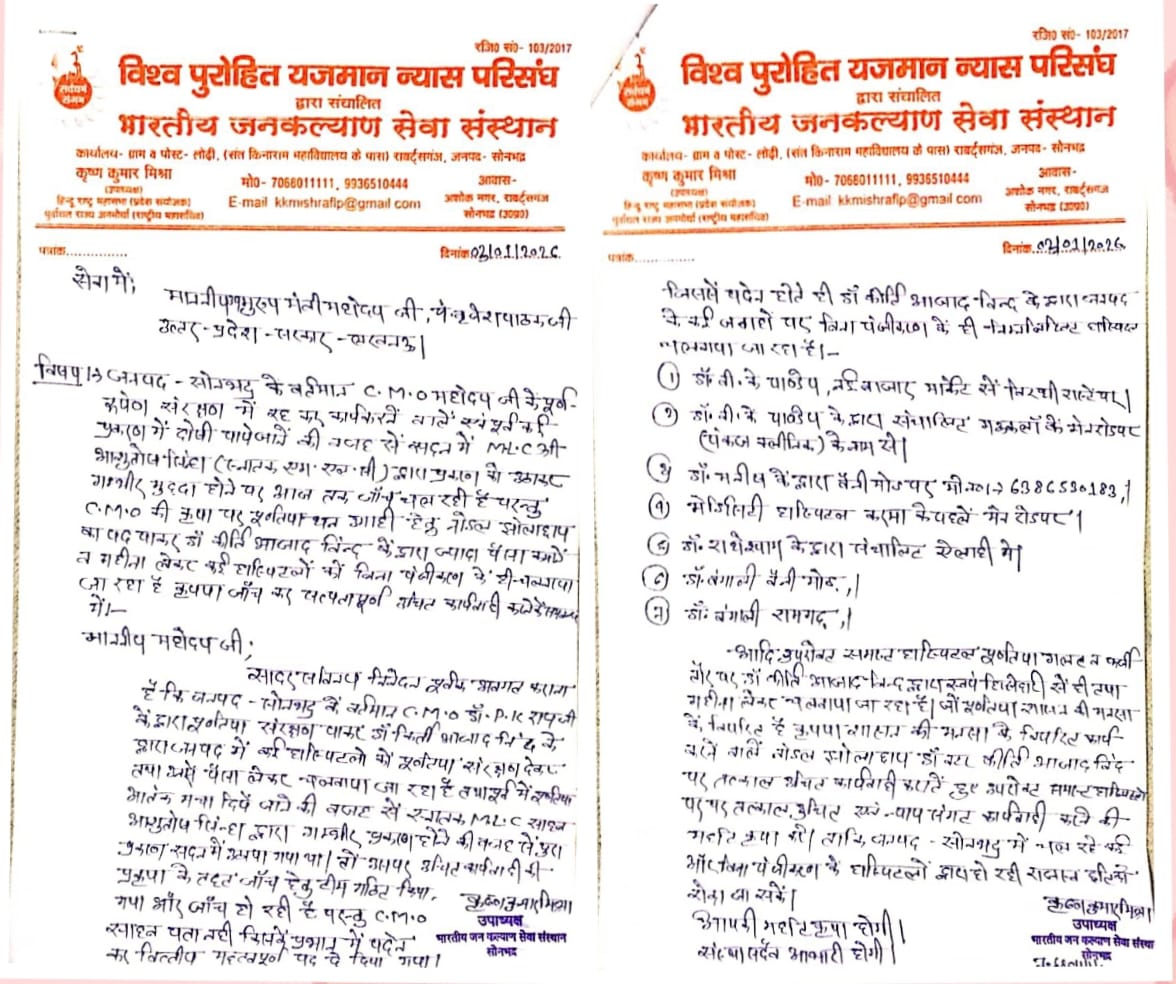 रजि0 सं0- 103/2017
सर्वधर्म संगम
विश्व पुरोहित यजमान न्यास परिसंघ
द्वारा संचालित
भारतीय जनकल्याण सेवा संस्थान
कार्यालय- ग्राम व पोस्ट- लोढ़ी, (संत किनाराम महाविद्यालय के पास) राबर्ट्सगंज, जनपद- सोनभद्र
कृष्ण कुमार मिश्रा
(उपाध्यक्ष)
हिन्दू राष्ट्र महासभा (प्रदेश संयोजक)
पूर्वांचल राज्य जनमोर्चा (राष्ट्रीय महासचिव)
मो0- 7066011111, 9936510444
E-mail kkmishraflp@gmail.com
आवास-
अशोक नगर, राबर्ट्सगंज
सोनभद्र (उ0प्र0)
पत्रांक...............
दिनांक 03/01/2026
सेवा में,
माननीय मंत्री महोदय जी, पाठक जी
उत्तर-प्रदेश-सरकार-लखनऊ।
विषय:- जनपद-सोनभद्र के वर्तमान C.M.O महोदय जी के पूर्ण
रूपेण संरक्षण में रह कर कार्य करने वाले एवं पूर्व कई
प्रकरण में दोषी पाये जाने की वजह से सदन में M.L.C श्री
आशुतोष सिन्हा (स्नातक एम.एल.सी) द्वारा प्रकरण को उठाकर
गम्भीर मुद्दा होने पर आज तक जाँच चल रही है परन्तु
C.M.O की कृपा पर पूर्णतया धन उगाही हेतु नोडल झोलाछाप
का पद पाकर डॉ कीर्ति आजाद बिन्द के द्वारा ज्यादा पैसा कमाने
व महीना लेकर कई हास्पिटलों को बिना पंजीकरण के ही चलवाया
जा रहा है कृपया जाँच कर उचित कार्यवाही करने के सम्बन्ध
में।-
माननीय महोदय जी,
सादर सविनय निवेदन पूर्वक अवगत कराना
है कि जनपद-सोनभद्र के वर्तमान C.M.O डॉ. P.K राय जी
के द्वारा पूर्णतया संरक्षण पाकर डॉ किर्ती आजाद बिंद के
द्वारा जनपद में कई हास्पिटलो को पूर्णतया संरक्षण देकर
तथा उनसे पैसा लेकर चलवाया जा रहा है तथा पूर्व में पूर्णतया
आतंक मचा दिये जाने की वजह से स्नातक M.L.C साहब
आशुतोष सिन्हा द्वारा गम्भीर प्रकरण होने की वजह से पुरा
प्रकरण सदन में उठाया गया था। तो उसपर उचित कार्यवाही की
प्रकृया के तहत जाँच हेतु टीम गठित किया
गया और जाँच हो रही है परन्तु C.M.O
साहब पता नही किसके प्रभाव में पदेन
कर वित्तीय महत्वपूर्ण पद दे दिया गया।
कृष्ण कुमार मिश्रा
उपाध्यक्ष
भारतीय जन कल्याण सेवा संस्थान
सोनभद्र
रजि0 सं0- 103/2017
सर्वधर्म संगम
विश्व पुरोहित यजमान न्यास परिसंघ
द्वारा संचालित
भारतीय जनकल्याण सेवा संस्थान
कार्यालय- ग्राम व पोस्ट- लोढ़ी, (संत किनाराम महाविद्यालय के पास) राबर्ट्सगंज, जनपद- सोनभद्र
कृष्ण कुमार मिश्रा
(उपाध्यक्ष)
हिन्दू राष्ट्र महासभा (प्रदेश संयोजक)
पूर्वांचल राज्य जनमोर्चा (राष्ट्रीय महासचिव)
मो0- 7066011111, 9936510444
E-mail kkmishraflp@gmail.com
आवास-
अशोक नगर, राबर्ट्सगंज
सोनभद्र (उ0प्र0)
पत्रांक...............
दिनांक 03/01/2026
जिसमें पदेन होते ही डॉ कीर्ति आजाद बिन्द के द्वारा जनपद
के कई जगहों पर बिना पंजीकरण के ही निम्नलिखित हास्पिटल
चलवाया जा रहा है।-
① डॉ. वी. के पाण्डेय, नई बाजार मार्केट से रास्ते पर।
② डॉ. वी. के पाण्डेय के द्वारा संचालित के मेन रोड पर
(पंकज क्लीनिक) के नाम से।
③ डॉ. मनीष के द्वारा बैनी मोड पर मो0नं0-> 6386530183,।
④ हास्पिटल करमा के पहले मेन रोड पर।
⑤ डॉ. राधेश्याम के द्वारा संचालित में।
⑥ डॉ. बंगाली बैनी मोड,।
⑦ डॉ. बंगाली रामगढ़,।
आदि उपरोक्त समस्त हास्पिटल पूर्णतया गलत व फर्जी
तौर पर डॉ कीर्ति आजाद बिन्द द्वारा स्वयं हिस्सेदारी से ही तथा
महीना लेकर चलवाया जा रहा है। जो पूर्णतया शासन की मनसा
के विपरित है कृपया शासन की मनसा के विपरित कार्य
करने वाले नोडल झोला छाप डॉ कीर्ति आजाद बिंद
पर तत्काल उचित कार्यवाही करते हुए उपरोक्त समस्त हास्पिटलो
पर तत्काल उचित एवं न्याय संगत कार्यवाही करने की
महति कृपा करें। ताकि जनपद-सोनभद्र में चल रहे कई
और बिना पंजीकरण के हास्पिटलों द्वारा हो रही राजस्व क्षति को
रोका जा सके।
आपकी महति कृपा होगी।
संस्था सदैव आभारी होगी।
कृष्ण कुमार मिश्रा
उपाध्यक्ष
भारतीय जन कल्याण सेवा संस्थान
सोनभद्र